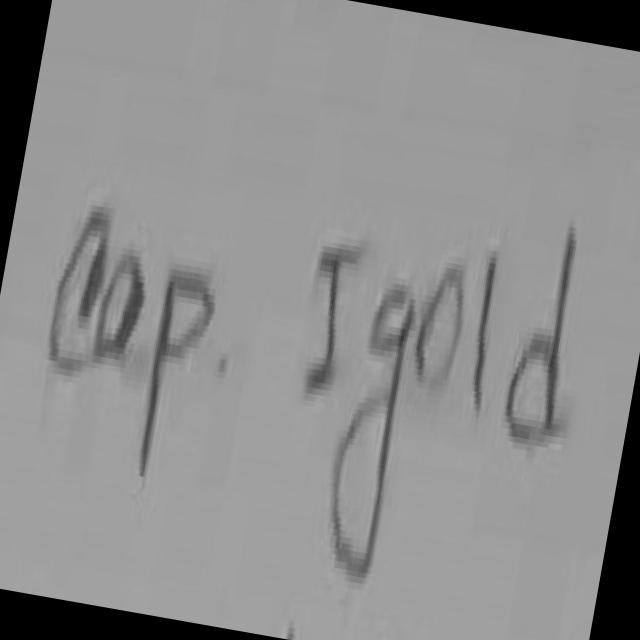 Cop. Igold